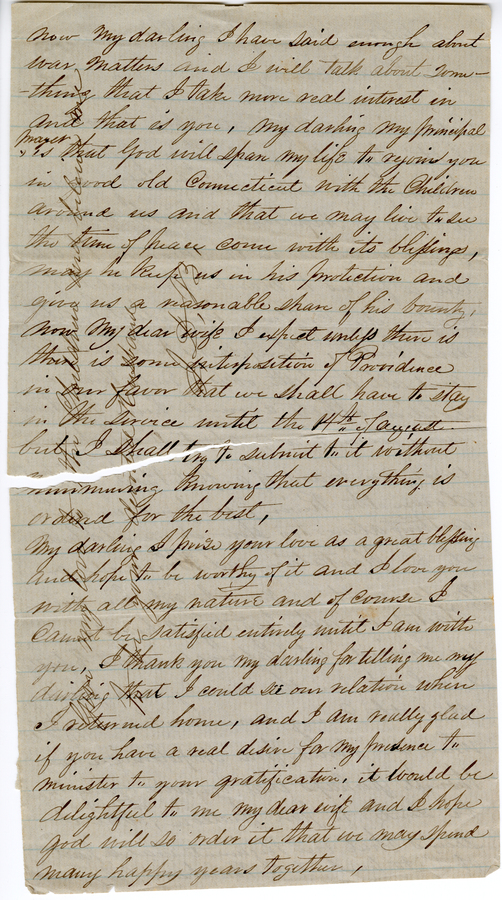 now my darling I have said enough about
war matters and I will talk about some-
-thing that I take more real interest in
and that is you, my darling my principal
prayer
is that God will span my life to rejoin you
in good old Connecticut with the Children
around us and that we may live to see
the time of peace come with its blessings,
may he keep us in his protection and
give us a reasonable share of his bounty,
now my dear wife I expect unless there is
there is some interposition of Providence
in our favor that we shall have to stay
in the service until the 14th of august
but I shall try to submit to it without
murmuring knowing that everything is
ordend for the best,
my darling I prise your love as a great blessing
and hope to be worthy of it and I love you
with all my nature and of course I
cannot be satisfied entirely until I am with
you, I thank you my darling for telling me my
darling that I could see our relation when
I returned home, and I am really glad
if you have a real desire for my presence to
minister to your gratification, it would be
delightful to me my dear wife and I hope
god will so order it that we may spend
many happy years together,